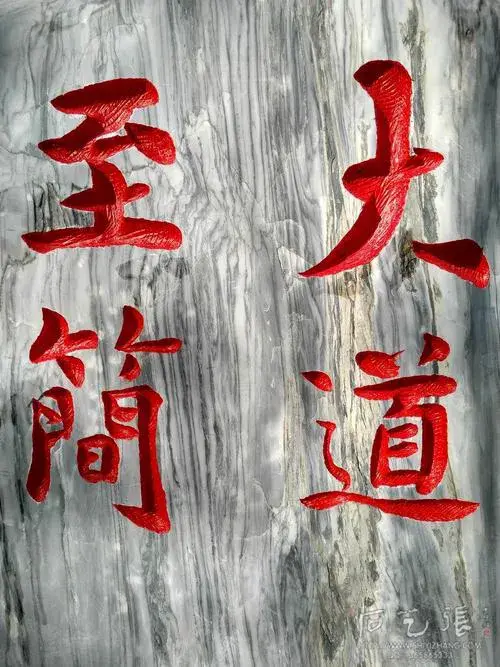 大道
至簡
WWW.SHIYIZHANG.COM